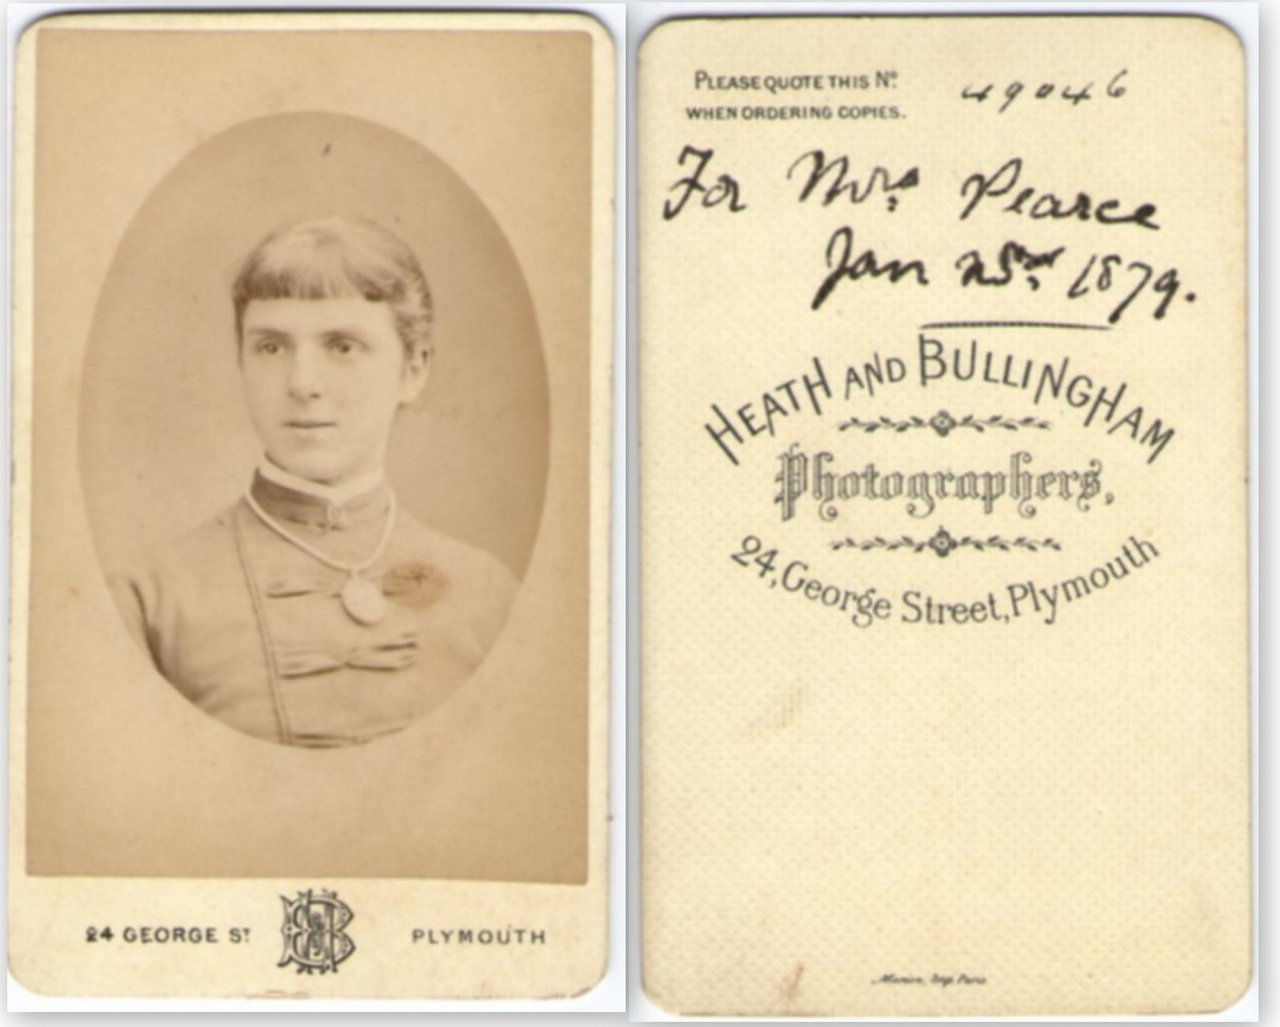 24 GEORGE ST. PLYMOUTH
PLEASE QUOTE THIS No.
WHEN ORDERING COPIES.
49046
For Mrs. Pearce
Jan 1879.
HEATH AND BULLINGHAM
Photographers,
24, George Street, Plymouth
Marion, Imp. Paris